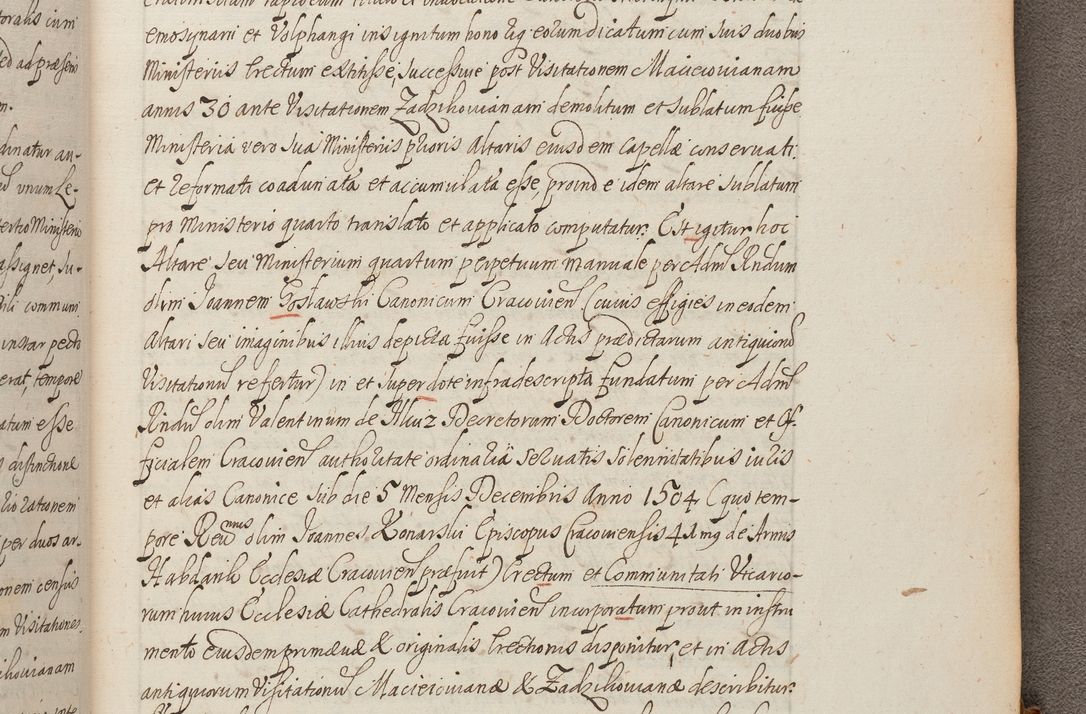 emosynarii et Volphangi insignitum hono rig eorum dicatum cum suis duobus
Ministeriis Erectum extitisse, successive post Visitationem Macieiovianam
annis 30 ante Visitationem Zadzikovianam demolitum et sublatum fuisse
Ministeria vero sua Ministeriis prioris Altaris eiusdem capellæ conservati
et reformati coadunata et accumulata esse, proinde idem altare sublatum
pro Ministerio quarto translato et applicato computatur. Est igitur hoc
Altare seu Ministerium quartum perpetuum manuale per Adm Rndum
olim Joannem Gosławski Canonicum Cracovien (cuius effigies in eodem
Altari seu imaginibus illius depicta fuisse in Actis prædictarum antiquiorũ
Visitationũ refertur) in et super dote infradescripta fundatum per Adm
Rndũ olim Valentinum de Ilkuz Decretorum Doctorem Canonicum et Of-
ficialem Cracovien authoritate ordinaria servatis solennitatibus iuris
et alias Canonice sub die 5 Mensis Decembris Anno 1504 (quo tem-
pore Reumus olim Joannes Konarski Episcopus Cracoviensis 41mg de Armis
Habdank Ecclesiæ Cracovien præfuit) Erectum et Communitati Vicario-
rum huius Ecclesiæ Cathedralis Cracovien incorporatum prout in instru
mento eiusdem primævæ & originalis Erectionis disponitur, et in Actis
antiquiorum Visitationũ Macieiovianæ & Zadzikovianæ describitur.
toralis cum
ted ad præsens
m.
dinatur an-
unum Le-
tertio Ministerio
assignet, su-
communi
erat, tempore
atum esse
distinctione
per duos ar-
onem census
m Visitationes
ikovianam